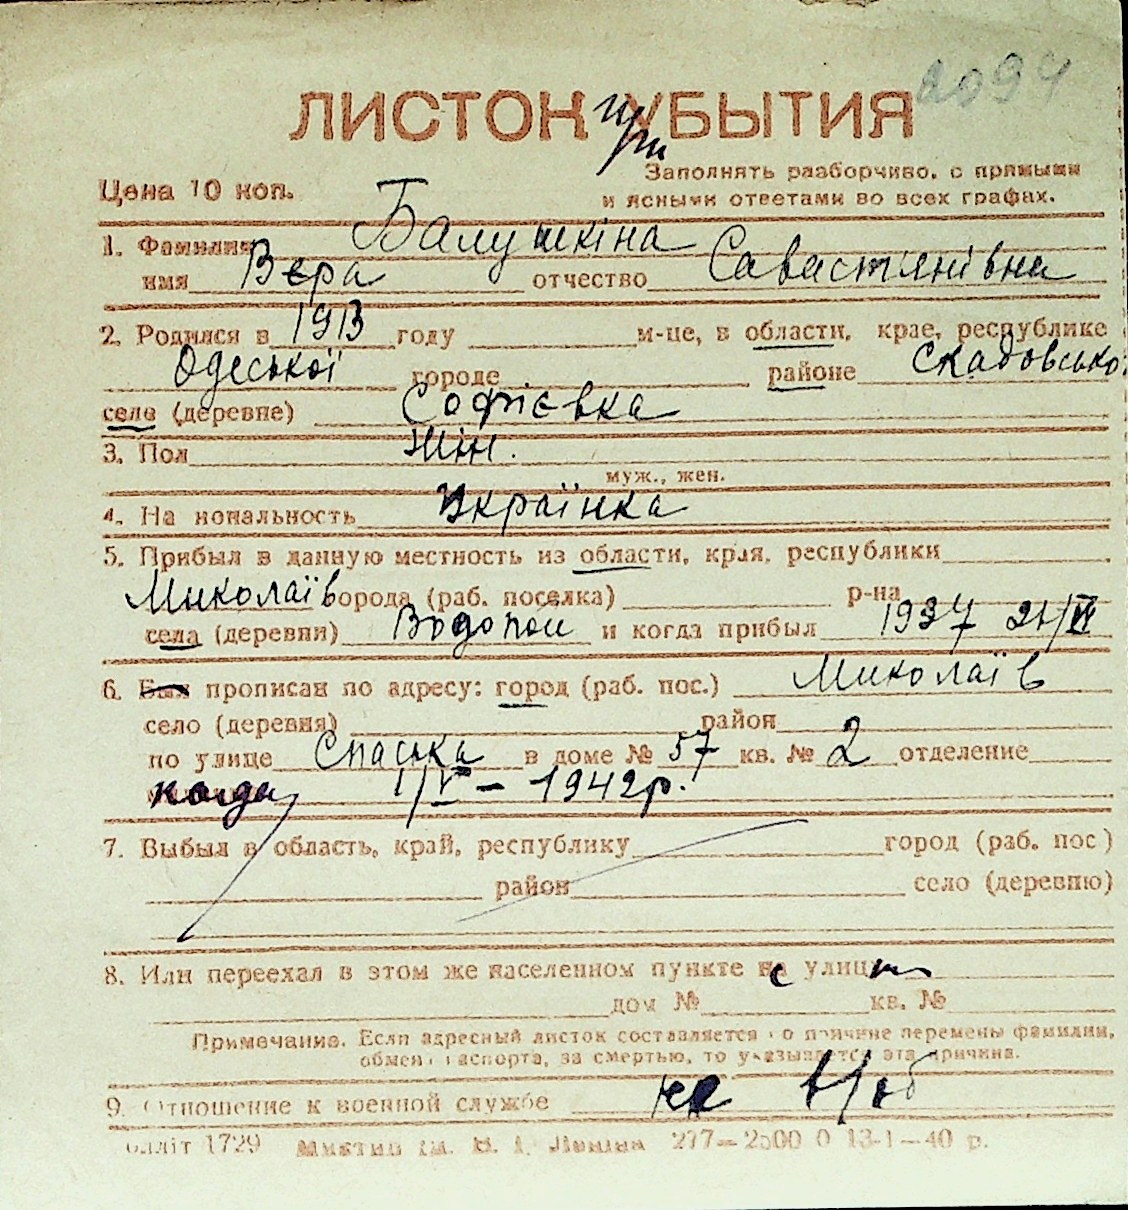 2094
ЛИСТОК при УБЫТИЯ
Заполнять разборчиво, с прямыми
Цена 10 коп.
и ясными ответами во всех графах.
1. Фамилия Балушкіна
имя Вєра отчество Савастянівна
2. Родился в 1913 году м-це, в области, крае, республике
Одеської городе районе Скадовсько
села (деревне) Софієвка
3. Пол жін.
муж., жен.
4. На иональность Українка
5. Прибыл в данную местность из области, края, республики
Миколаїв города (раб. поселка) р-на
села (деревни) Водопои и когда прибыл 1937 21/VI
6. Был прописан по адресу: город (раб. пос.) Миколаїв
село (деревня) район
по улице Спаська в доме № 57 кв. № 2 отделение
когда 1/V – 1942 р.
7. Выбыл в область, край, республику город (раб. пос)
район село (деревню)
8. Или переехал в этом же населенном пункте с улицы
дом № кв. №
Примечание. Если адресный листок составляется о причине перемены фамилии,
обмен паспорта, за смертью, то указывается эта причина.
9. Отношение к военной службе не в/об
блліт 1729 Миктип ім. В. І. Леніна 277—2500 0 13-1—40 р.